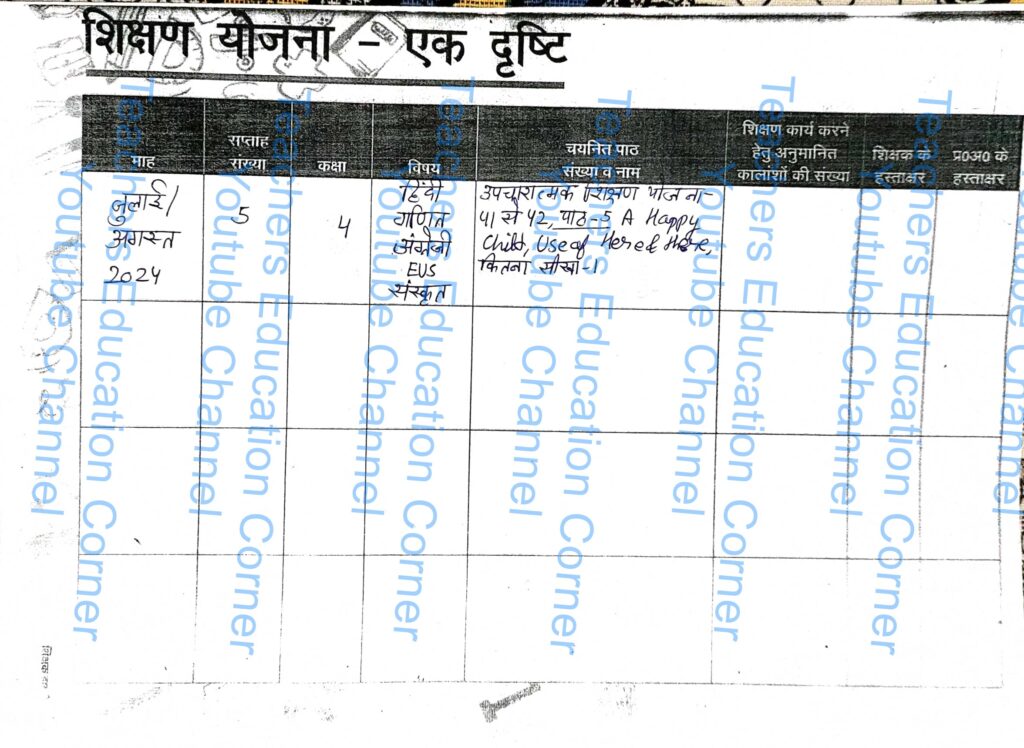 शिक्षण योजना – एक दृष्टि
माह
सप्ताह
संख्या
कक्षा
विषय
चयनित पाठ
संख्या व नाम
शिक्षण कार्य करने
हेतु अनुमानित
कालांशों की संख्या
शिक्षक के
हस्ताक्षर
प्र०अ० के
हस्ताक्षर
जुलाई/
अगस्त
2024
5
4
हिंदी
गणित
अंग्रेजी
EVS
संस्कृत
उपचारात्मक शिक्षण योजना-
41 से 42, पाठ-5 A Happy
Child, Use of Here & There,
कितना सीखा-1
Teachers Education Corner
Youtube Channel
Teachers Education Corner
Youtube Channel
Teachers Education Corner
Youtube Channel
Teachers Education Corner
Youtube Channel
Teachers Education Corner
Youtube Channel
Teachers Education Corner
Youtube Channel